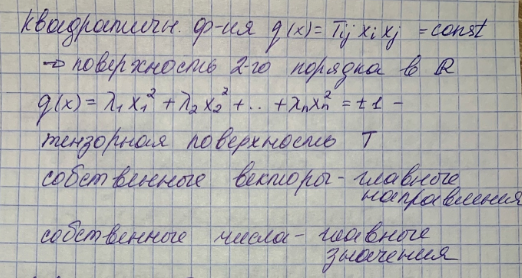 Квадратичн. ф-ия g(x) = Tij xi xj = const
→ поверхность 2-го порядка в R
g(x) = λ₁x₁² + λ₂x₂² + .. + λnxn² = ±1 –
тензорная поверхность T
собственные векторы - главные
направления
собственные числа - главные
значения